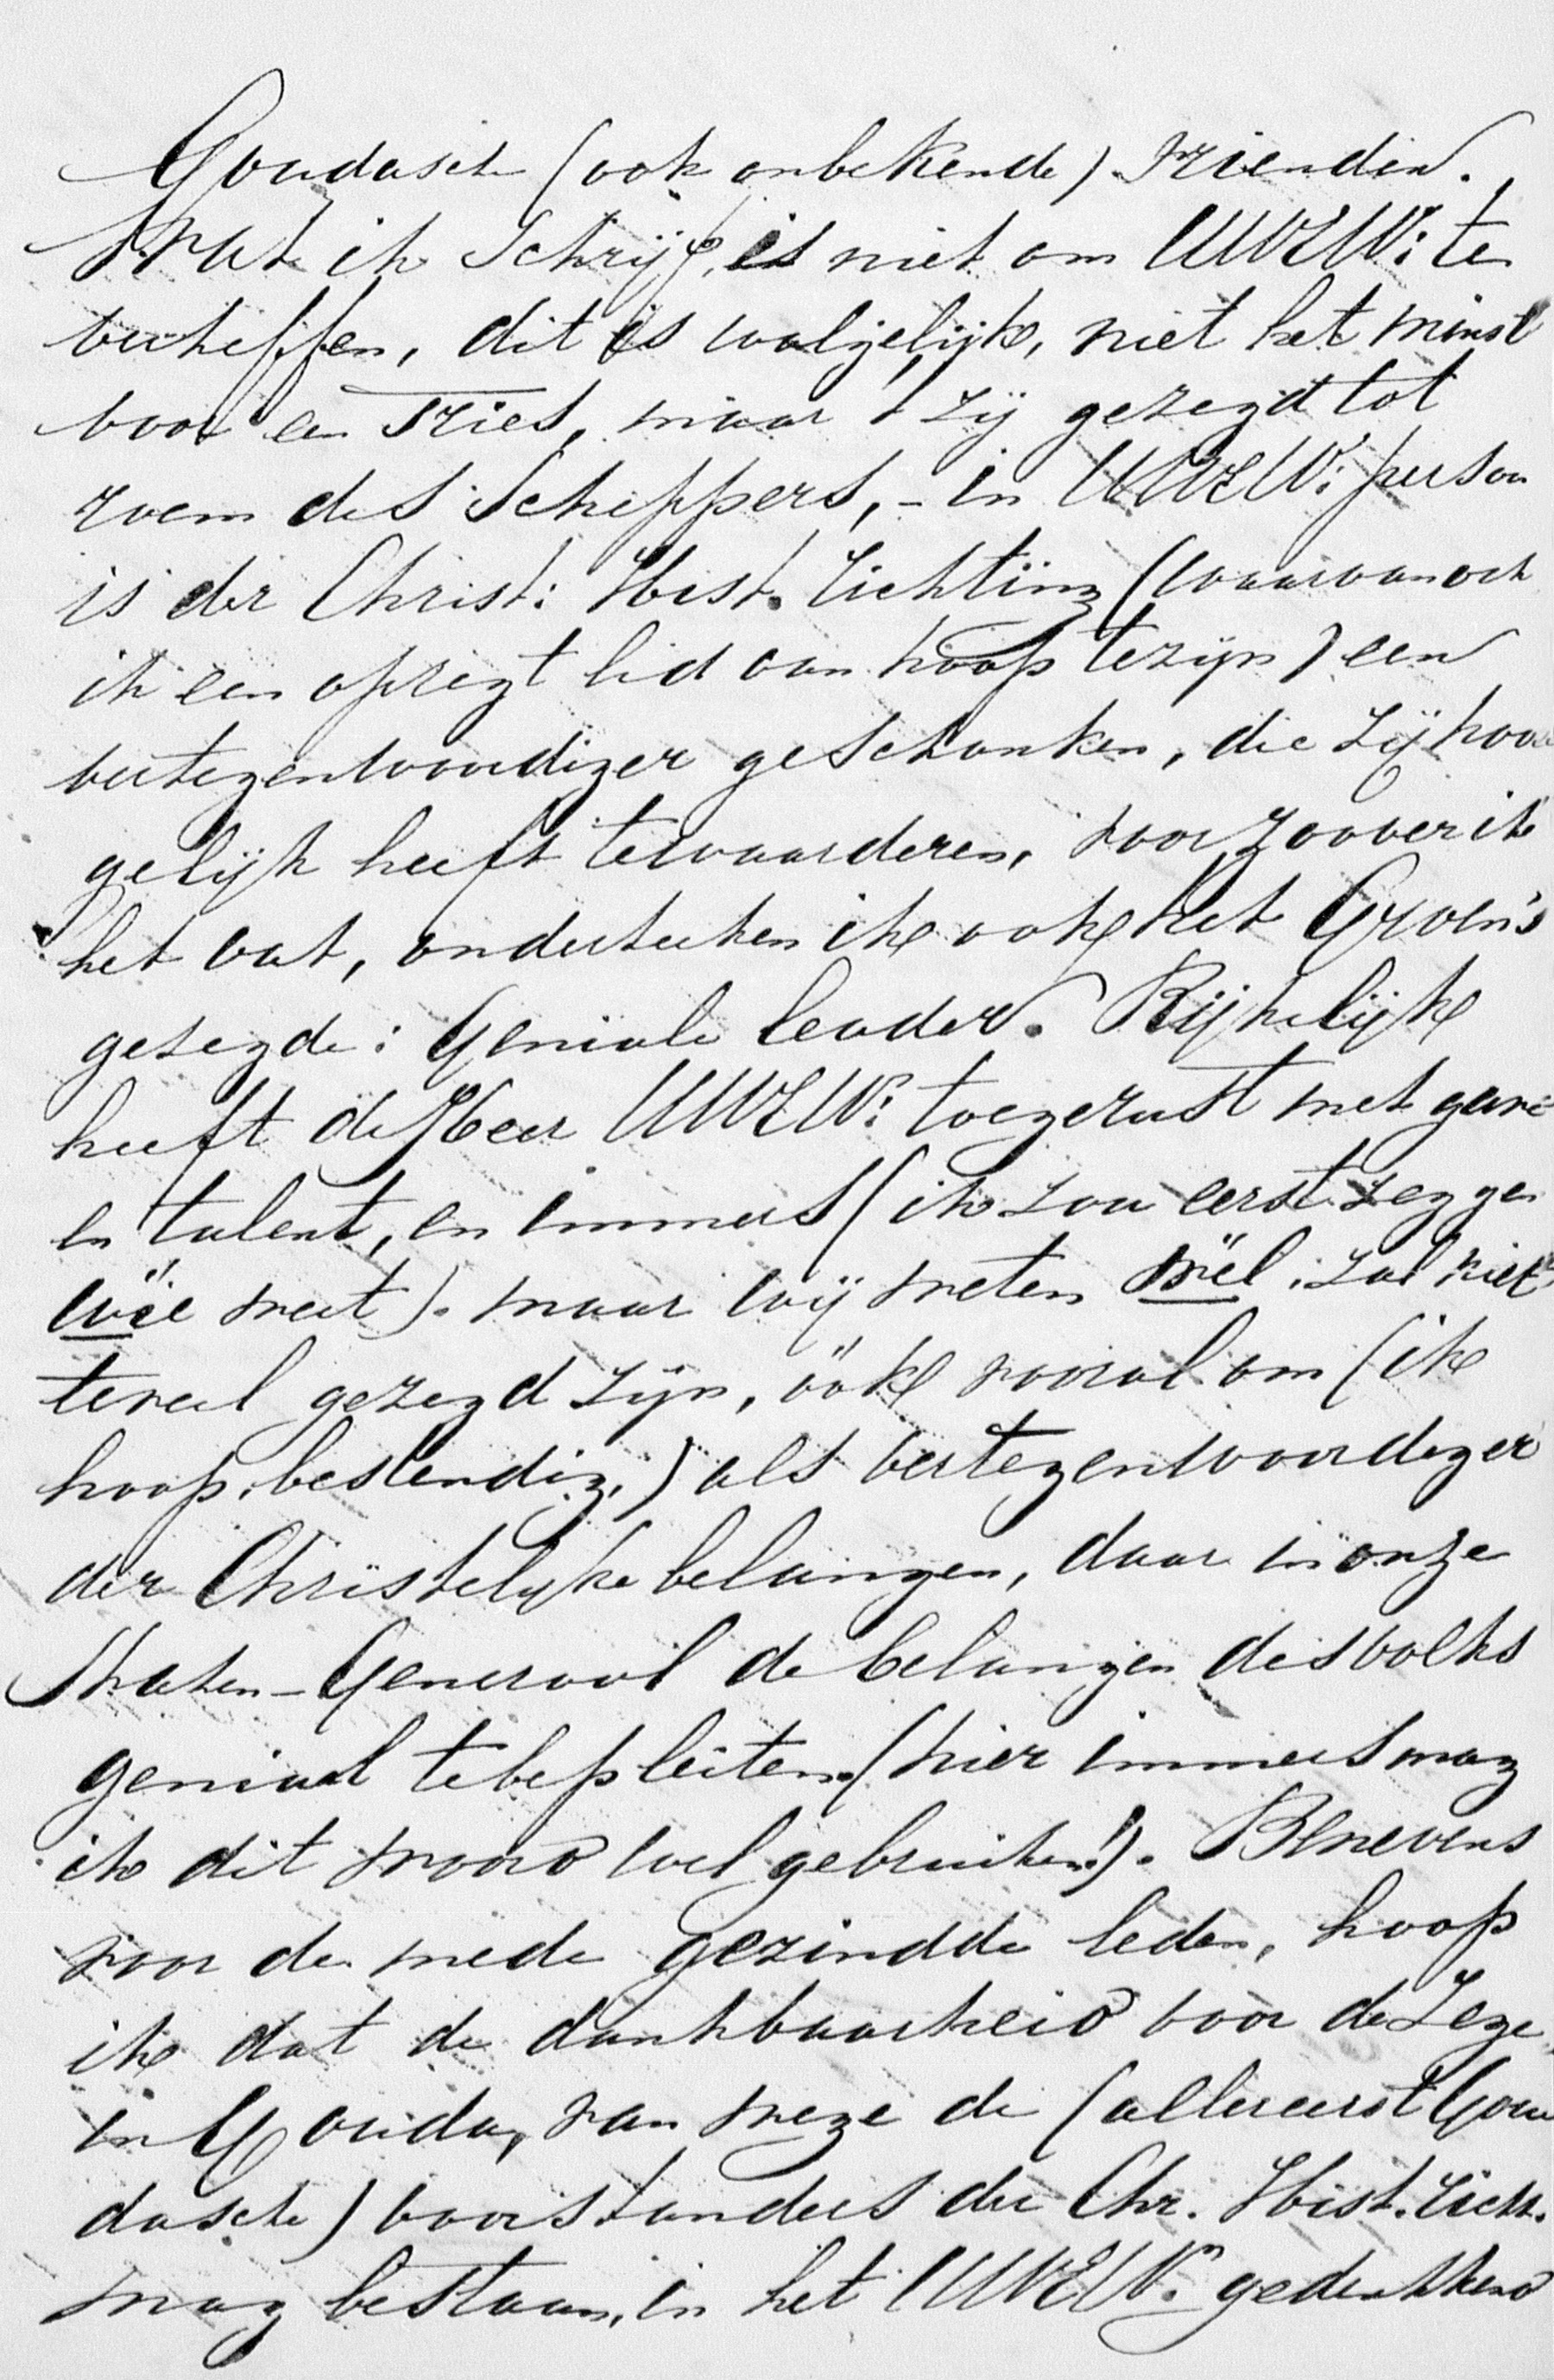 Goudasch (ook onbekende) vriendin.
Wat ik schrijf, is niet om UWEW: te
verheffen, dit is walgelijk, niet het minst
voor een Fries, maar 't zij gezegd tot
roem des Scheppers, - in UWEW: persoon
is der Christ: Hist. richting (waarvan ook
ik een opregt lid van hoop te zijn) een
vertegenwoordiger geschonken, die zij hoo
gelijk heeft te waarderen, voor zoover ik
het vat, onderteeken ik ook het Groen's
gezegde: Geniale leader. Rijkelijk
heeft de Heer UWEW: toegerust met gave
en talent, en immers (ik zou eerst zeggen
wie weet). maar wij weten wel. zal niet
teveel gezegd zijn, ook vooral om (ik
hoop, bestendig,) als vertegenwoordiger
der Christelijke belangen, daar in onze
Staten-Generaal de belangen des volks
geniaal te bepleiten (hier immers mag
ik dit woord wel gebruiken!). Benevens
voor de mede gezindde leden, hoop
ik dat de dankbaarheid voor de Zege
in Gouda, van wege de (allereerst Gou
dasche) voorstanders der Chr. Hist. richt.
mag bestaan, in het UWEW: gedenkend